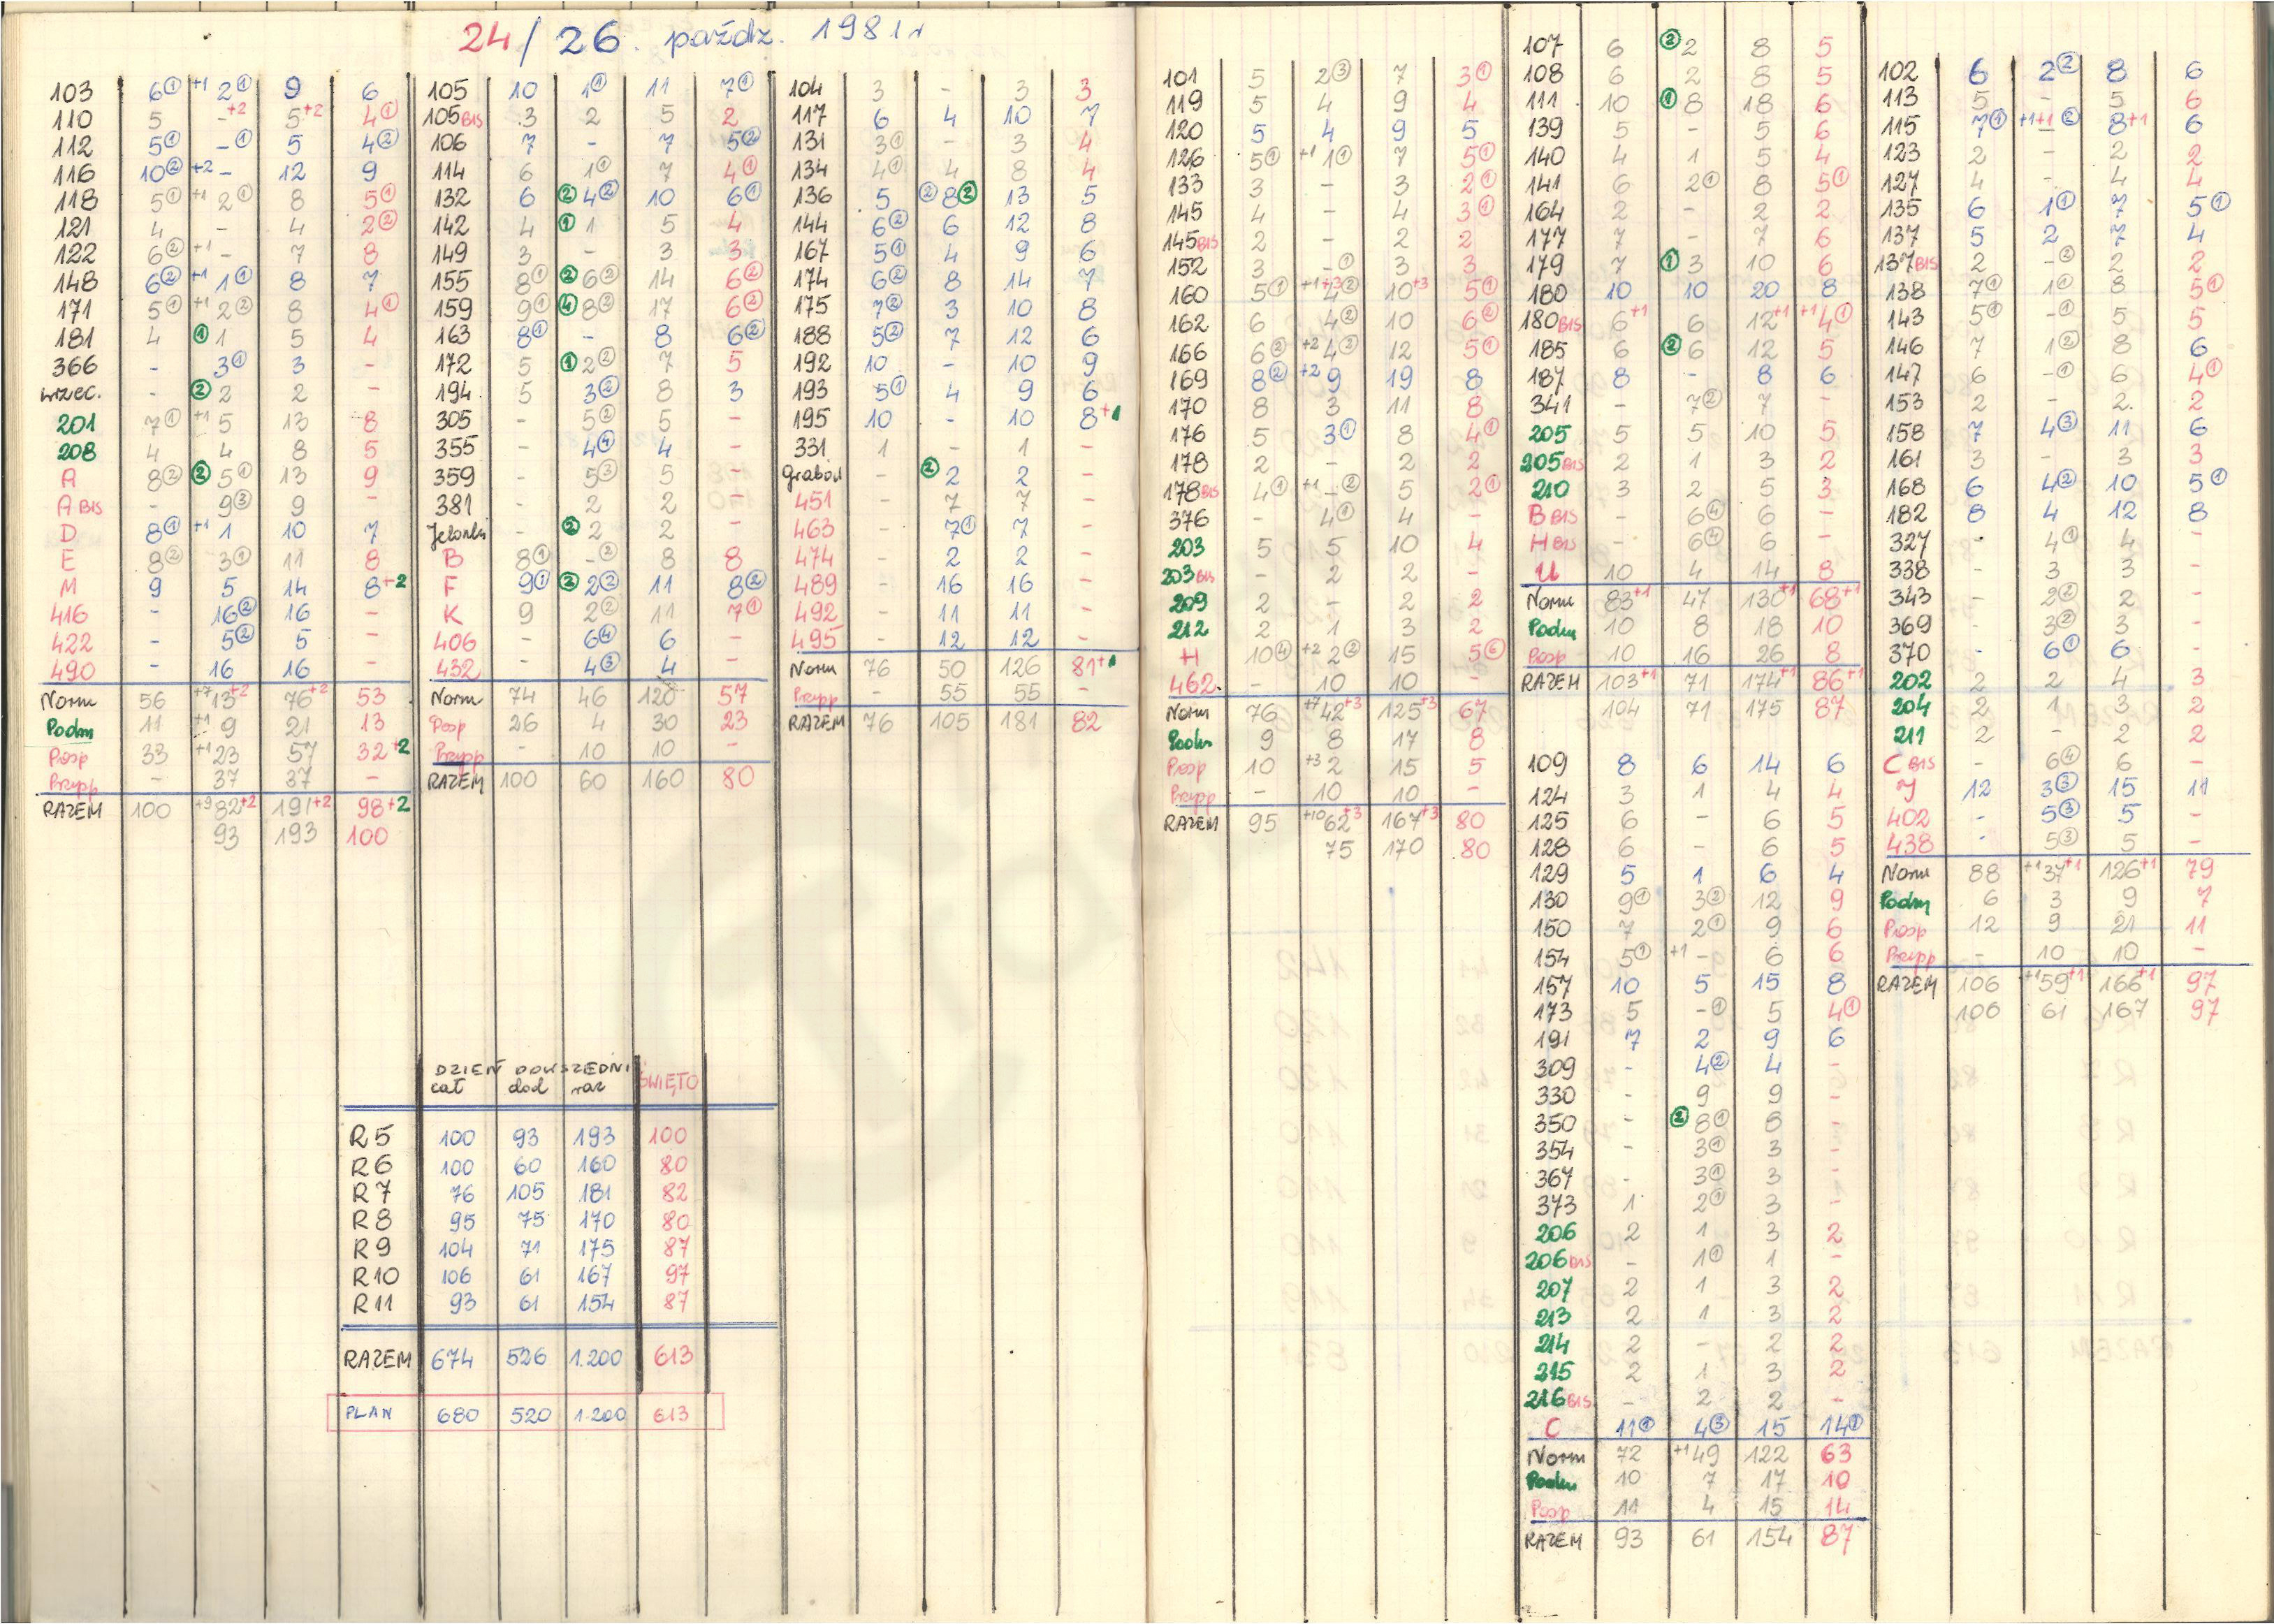 24/26. paźdz. 1981r
103 6① +1 2① 9 6
110 5 -+2 5+2 4①
112 5① -① 5 4②
116 10② +2 - 12 9
118 5① +1 2① 8 5①
121 4 - 4 2②
122 6② +1 - 7 8
148 6② +1 1① 8 7
171 5① +1 2② 8 4①
181 4 ① 1 5 4
366 - 3① 3 -
wrzec. - ② 2 2 -
201 7① +1 5 13 8
208 4 4 8 5
A 8② ② 5① 13 9
A BIS - 9③ 9 -
D 8① +1 1 10 7
E 8② 3① 11 8
M 9 5 14 8+2
416 - 16② 16 -
422 - 5② 5 -
490 - 16 16 -
Norm 56 +7 13+2 76+2 53
Podm 11 +1 9 21 13
Posp 33 +1 23 57 32+2
Przysp - 37 37 -
RAZEM 100 +9 82+2 191+2 98+2
93 193 100
105 10 1① 11 7①
105 BIS 3 2 5 2
106 7 - 7 5②
114 6 1① 7 4①
132 6 ② 4② 10 6①
142 4 ① 1 5 4
149 3 - 3 3
155 8① ② 6② 14 6②
159 9① ④ 8② 17 6②
163 8① - 8 6②
172 5 ① 2② 7 5
194 5 3② 8 3
305 - 5② 5 -
355 - 4④ 4 -
359 - 5③ 5 -
381 - 2 2 -
Jelonki - ② 2 2 -
B 8① -② 8 8
F 9① ② 2② 11 8②
K 9 2② 11 7①
406 - 6④ 6 -
432 - 4③ 4 -
Norm 74 46 120 57
Posp 26 4 30 23
Przysp - 10 10 -
RAZEM 100 60 160 80
104 3 - 3 3
117 6 4 10 7
131 3① - 3 4
134 4① 4 8 4
136 5 ② 8② 13 5
144 6② 6 12 8
167 5① 4 9 6
174 6② 8 14 7
175 7② 3 10 8
188 5② 7 12 6
192 10 - 10 9
193 5① 4 9 6
195 10 - 10 8+1
331 1 - 1 -
Grabow - ② 2 2 -
451 - 7 7 -
463 - 7① 7 -
474 - 2 2 -
489 - 16 16 -
492 - 11 11 -
495 - 12 12 -
Norm 76 50 126 81+1
Przysp - 55 55 -
RAZEM 76 105 181 82
DZIEŃ POWSZEDNI ŚWIĘTO
cał dod raz
R5 100 93 193 100
R6 100 60 160 80
R7 76 105 181 82
R8 95 75 170 80
R9 104 71 175 87
R10 106 61 167 97
R11 93 61 154 87
RAZEM 674 526 1.200 613
PLAN 680 520 1.200 613
101 5 2③ 7 3①
119 5 4 9 4
120 5 4 9 5
126 5① +1 1① 7 5①
133 3 - 3 2①
145 4 - 4 3①
145 BIS 2 - 2 2
152 3 -① 3 3
160 5① +1+3 4② 10+3 5①
162 6 4② 10 6②
166 6② +2 4② 12 5①
169 8② +2 9 19 8
170 8 3 11 8
176 5 3① 8 4①
178 2 - 2 2
178 BIS 4① +1 -② 5 2①
376 - 4① 4 -
203 5 5 10 4
203 BIS - 2 2 -
209 2 - 2 2
212 2 1 3 2
H 10④ +2 2② 15 5⑥
462 - 10 10 -
Norm 76 +7 42+3 125+3 67
Podm 9 8 17 8
Posp 10 +3 2 15 5
Przysp - 10 10 -
RAZEM 95 +10 62+3 167+3 80
75 170 80
107 6 ② 2 8 5
108 6 2 8 5
111 10 ① 8 18 6
139 5 - 5 6
140 4 1 5 4
141 6 2① 8 5①
164 2 - 2 2
177 7 - 7 6
179 7 ① 3 10 6
180 10 10 20 8
180 BIS 6+1 6 12+1 +1 4①
185 6 ② 6 12 5
187 8 - 8 6
341 - 7② 7 -
205 5 5 10 5
205 BIS 2 1 3 2
210 3 2 5 3
B BIS - 6④ 6 -
H BIS - 6④ 6 -
U 10 4 14 8
Norm 83+1 47 130+1 68+1
Podm 10 8 18 10
Posp 10 16 26 8
RAZEM 103+1 71 174+1 86+1
104 71 175 87
109 8 6 14 6
124 3 1 4 4
125 6 - 6 5
128 6 - 6 5
129 5 1 6 4
130 9① 3② 12 9
150 7 2① 9 6
154 5① +1 - 6 6
157 10 5 15 8
173 5 -① 5 4①
191 7 2 9 6
309 - 4② 4 -
330 - 9 9 -
350 - ② 8① 8 -
354 - 3① 3 -
367 - 3① 3 -
373 1 2① 3 -
206 2 1 3 2
206 BIS - 1① 1 -
207 2 1 3 2
213 2 1 3 2
214 2 - 2 2
215 2 1 3 2
216 BIS - 2 2 -
C 11① 4③ 15 14①
Norm 72 +1 49 122 63
Podm 10 7 17 10
Posp 11 4 15 14
RAZEM 93 61 154 87
102 6 2② 8 6
113 5 - 5 6
115 7① +1+1 -② 8+1 6
123 2 - 2 2
127 4 - 4 4
135 6 1① 7 5①
137 5 2 7 4
137 BIS 2 -② 2 2
138 7① 1① 8 5①
143 5① -① 5 5
146 7 1② 8 6
147 6 -① 6 4①
153 2 - 2. 2
158 7 4③ 11 6
161 3 - 3 3
168 6 4② 10 5①
182 8 4 12 8
327 - 4① 4 -
338 - 3 3 -
343 - 2② 2 -
369 - 3② 3 -
370 - 6① 6 -
202 2 2 4 3
204 2 1 3 2
211 2 - 2 2
C BIS - 6④ 6 -
J 12 3③ 15 11
402 - 5③ 5 -
438 - 5③ 5 -
Norm 88 +1 37+1 126+1 79
Podm 6 3 9 7
Posp 12 9 21 11
Przysp - 10 10 -
RAZEM 106 +1 59+1 166+1 97
106 61 167 97